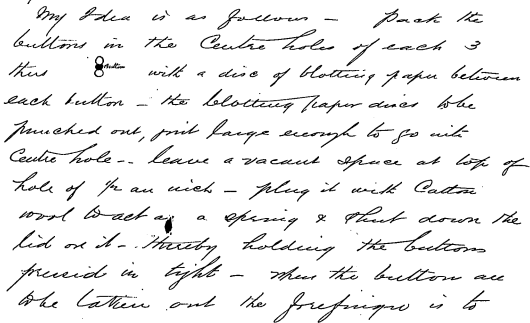 My Idea is as follows – Pack the
buttons in the Centre holes of each 3
thus button with a disc of blotting paper between
each button – the blotting paper discs to be
punched out, just large enough to go into
Centre hole – leave a vacant space at top of
hole of 1/2 an inch – plug it with Cotton
wool to act as a spring & shut down the
lid on it – thereby holding the buttons
pressed in tight – when the button are
to be taken out the forefinger is to